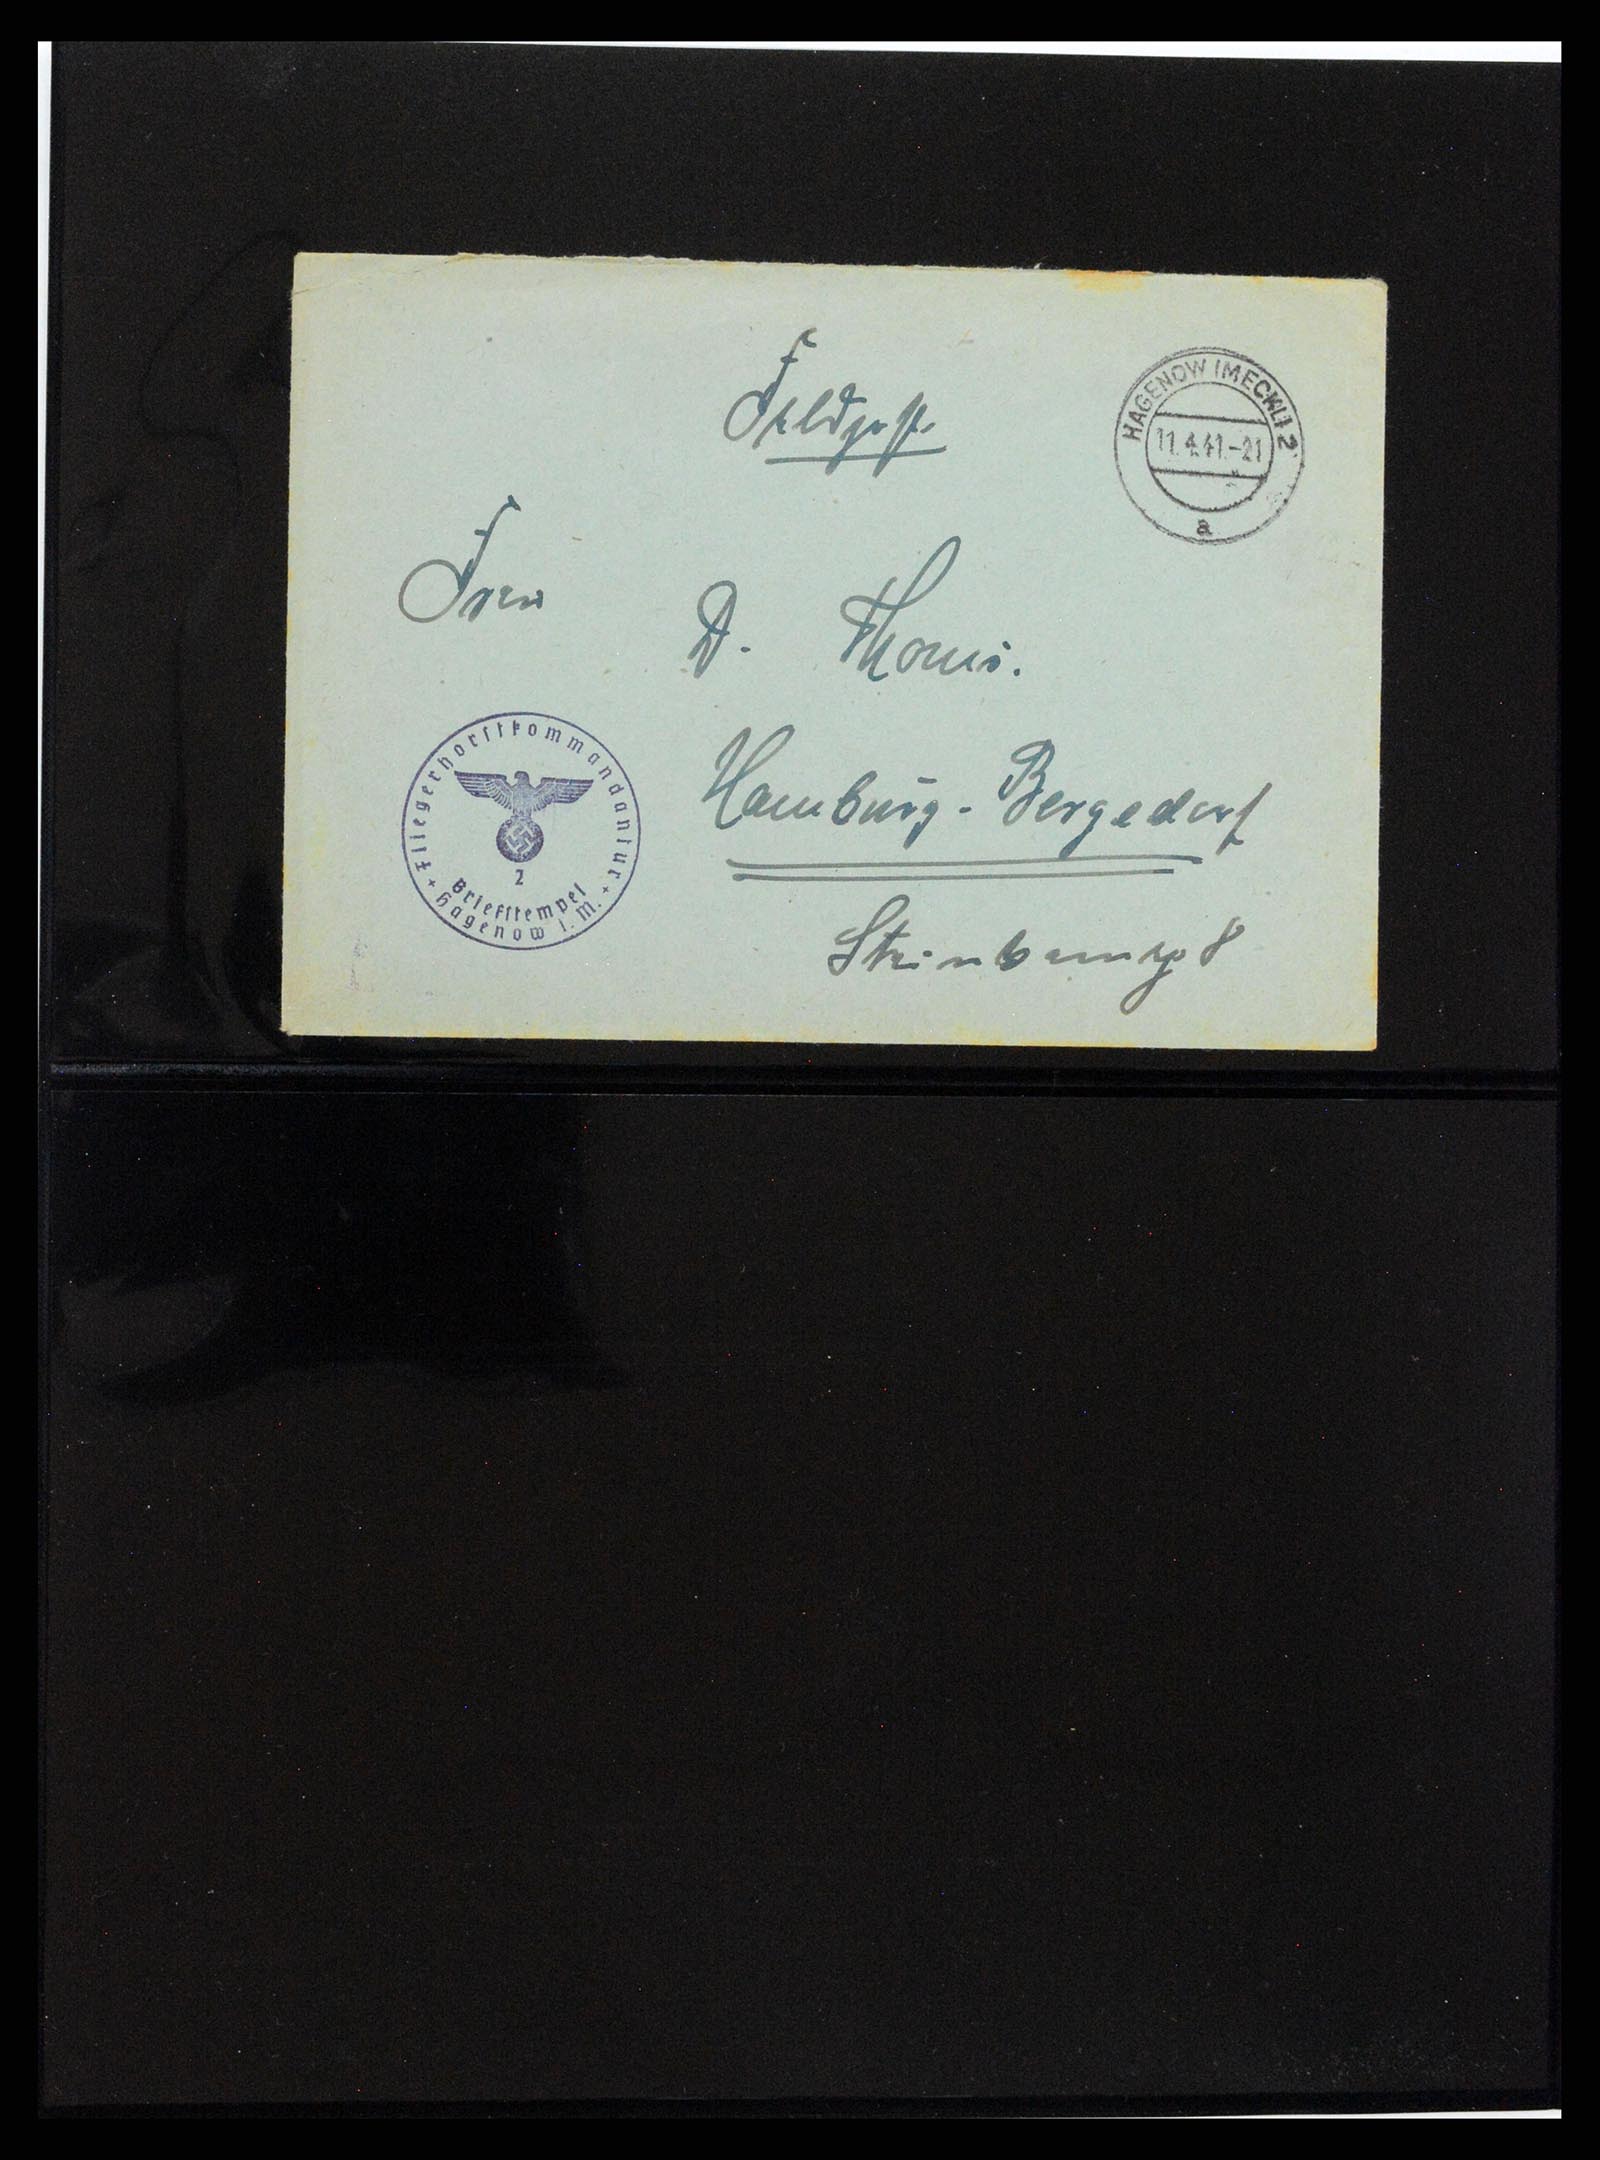 Feldpost.
HAGENOW (MECKL) 2
11.4.41.-21
a
Frau
D. Thoms.
Hamburg-Bergedorf
8
Fliegerhorstkommandantur
2
Briefstempel
Hagenow i. M.